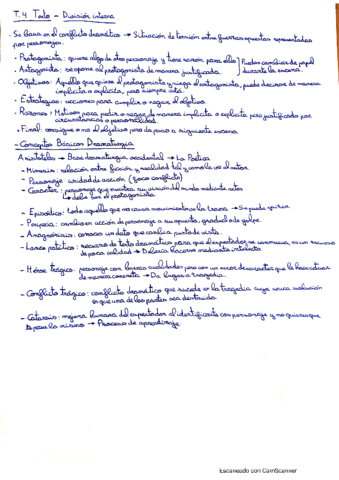 T.4 Texto - División interna
· Se basa en el conflicto dramático → Situación de tensión entre fuerzas opuestas representadas
por personajes.
· Protagonista: quiere algo de otro personaje y tiene razón para ello
· Antagonista: se opone al protagonista de manera justificada.
Pueden cambiar de papel
durante la escena.
· Objetivos: Aquello que quiere el protagonista y niega el antagonista, puede decirse de manera
implícita o explícita, pero siempre está.
· Estrategias: acciones para cumplir o negar el objetivo.
· Razones / Motivos para pedir o negar de manera implícita o explícita pero justificado por
circunstancias o personalidad.
· Final: consigue o no el objetivo pero da paso a siguiente escena
- Conceptos Básicos Dramaturgia
Aristóteles → Base dramaturgia occidental → La Poética
- Mímesis: relación entre ficción y realidad tal y como la ve el autor.
- Personaje: unidad de acción (foco conflicto)
- Carácter: personaje que muestra su visión del mundo mediante actos
↳ debe ser el protagonista.
- Episódico: todo aquello que no causa movimiento en la trama → Se puede quitar.
- Peripecia: cambio en acción de personaje a su opuesto, gradual o de golpe.
- Anagnórisis: conocer un dato que cambia punto de vista.
- Lance patético: recurso de texto dramático para que el espectador se conmueva, es un recurso
de poca calidad → Debería hacerse mediante
- Héroe trágico: personaje con buenas cualidades pero con un error de carácter que le hace actuar
de manera concreta → Da lugar a tragedia.
- Conflicto trágico: conflicto dramático que sucede en la tragedia cuya única solución
es que una de las partes sea destruida.
- Catarsis: mejora humana del espectador al identificarse con personaje y no quieres que
te pase lo mismo → Proceso de aprendizaje.
Escaneado con CamScanner